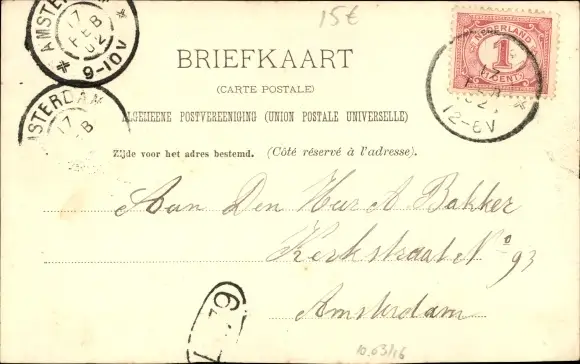 15€
AMSTERDAM
17
FEB
02
9-10V
NEDERLAND
1
CENT
12-6V
BRIEFKAART
(CARTE POSTALE)
ALGEMEENE POSTVEREENIGING (UNION POSTALE UNIVERSELLE)
AMSTERDAM
17
Zijde voor het adres bestemd. (Côté réservé à l'adresse).
Aan Den Heer A Bakker
Kerkstraat No 93
Amsterdam
10.03/16